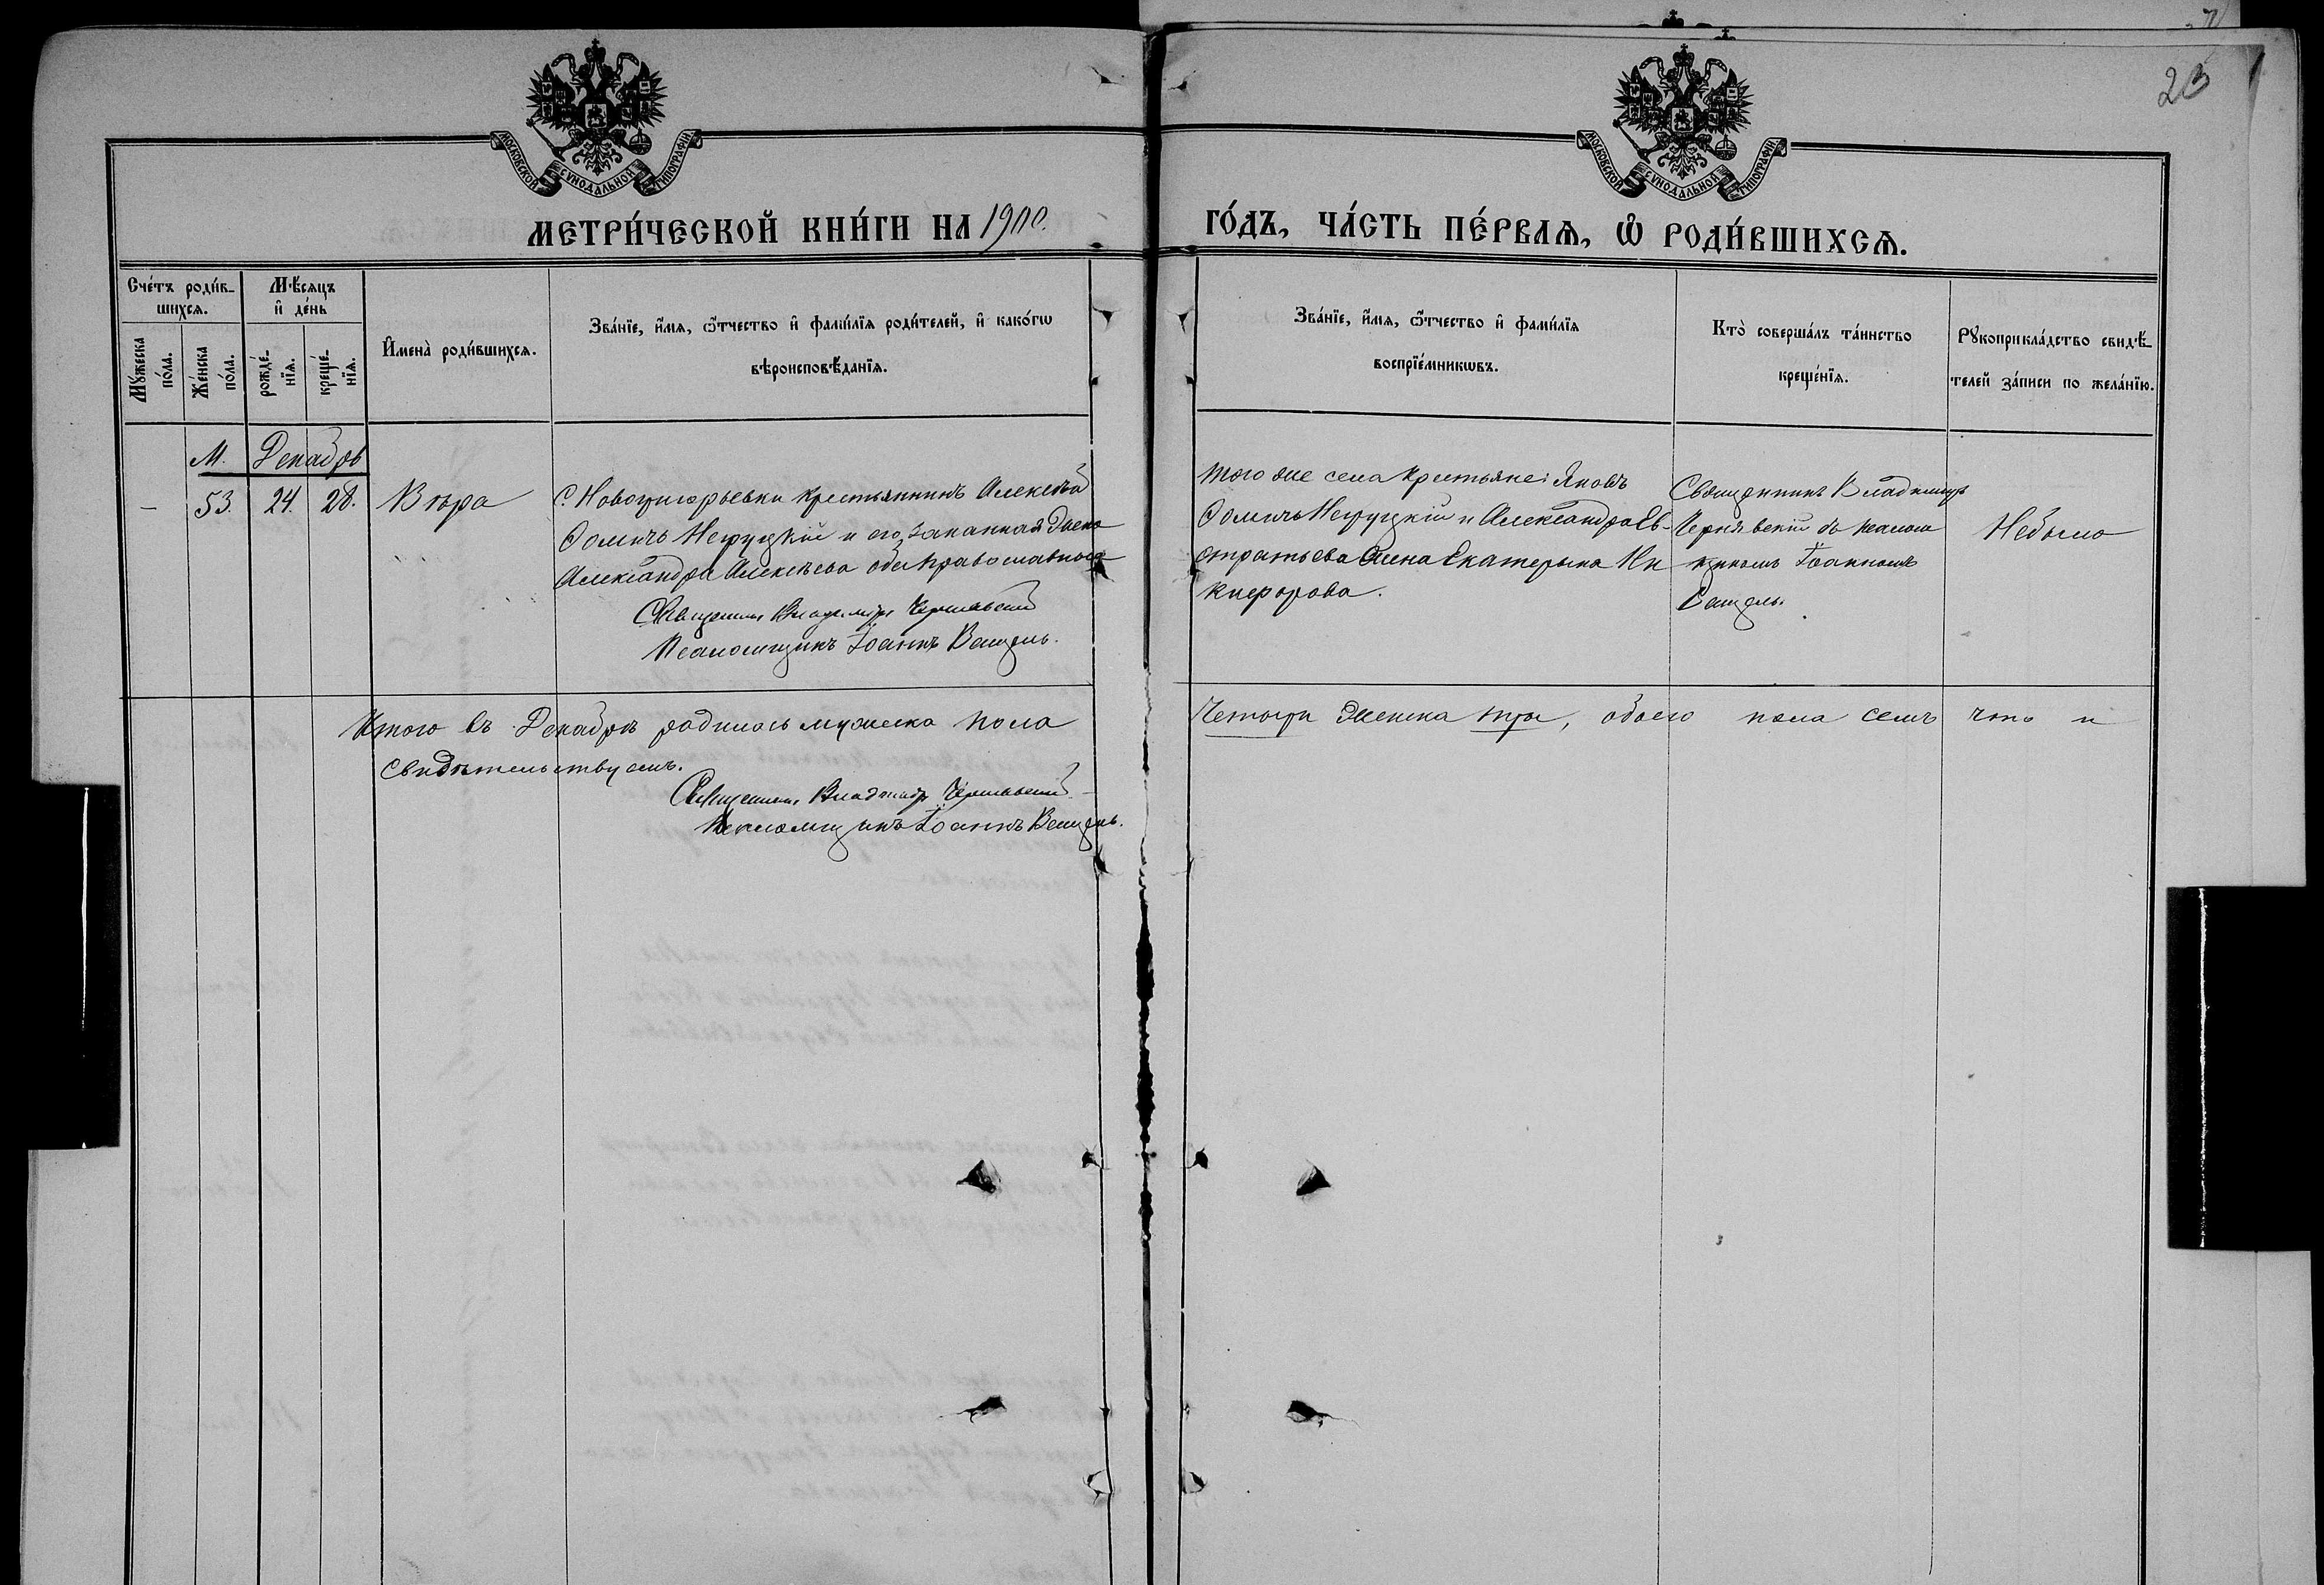 23
МОСКОВСКОЙ СУНОДАЛЬНОЙ ТИПОГРАФІИ
МОСКОВСКОЙ СУНОДАЛЬНОЙ ТИПОГРАФІИ
МЕТРИ́ЧЕСКОЙ КНИ́ГИ НА 1900.
ГО́ДЪ, ЧА́СТЬ ПЕ́РВАѦ, Ѡ҆ РОДИ́ВШИХСѦ.
Сче́тъ роди́в-
шихсѧ.
Мѣ́сѧцъ
и҆ де́нь
Мꙋ́жеска
по́ла.
Же́нска
по́ла.
рожде́-
нїѧ.
креще́-
нїѧ.
И҆мена̀ роди́вшихсѧ.
Зва́нїе, и҆́мѧ, ѻ҆́тчество и҆ фами́лїѧ роди́телей, и҆ како́гѡ
вѣроисповѣ́данїѧ.
Зва́нїе, и҆́мѧ, ѻ҆́тчество и҆ фами́лїѧ
воспрїе́мникѡвъ.
Кто̀ соверша́лъ та́инство
креще́нїѧ.
Рꙋкоприкла́дство свидѣ́-
телей за́писи по жела́нїю.
М. Декабрь
- 53. 24. 28. Вѣра
С. Новогригорьевки крестьянинъ Алексѣй
Ѳомичъ Неруцкій и его законная жена
Александра Алексѣева оба православные
Священникъ Владиміръ Чернявскій
Псаломщикъ Іоаннъ Венгель.
того же села крестьяне: Яковъ
Ѳомичъ Неруцкій и Александра Ев-
стратьева жена Екатерина Ни
кифорова.
Священникъ Владиміръ
Чернявскій съ псалом
щикомъ Іоанномъ
Небыло
Итого въ Декабрѣ родилось мужеска пола
Четыри женска три, обоего пола семь что и
свидѣтельствуемъ.
Священникъ Владиміръ Чернявскій
Псаломщикъ Іоаннъ Венгель.